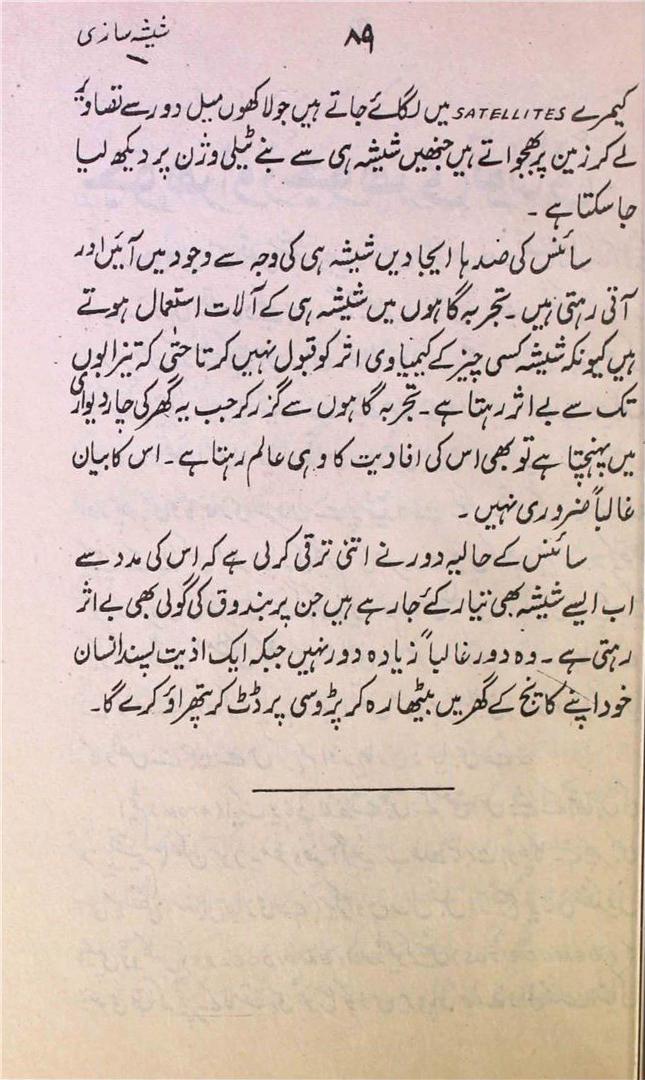 ۸۹ شیشہ سازی
کیمرے SATELLITES میں لگائے جاتے ہیں جو لاکھوں میل دور سے تصاویر
لے کر زمین پر بھجواتے ہیں جنھیں شیشہ ہی سے بنے ٹیلی وژن پر دیکھ لیا
جا سکتا ہے ۔
سائنس کی صدہا ایجادیں شیشہ ہی کی وجہ سے وجود میں آئیں اور
آتی رہتی ہیں ۔ تجربہ گاہوں میں شیشہ ہی کے آلات استعمال ہوتے
ہیں کیونکہ شیشہ کسی چیز کے کیمیاوی اثر کو قبول نہیں کرتا حتٰی کہ تیزابوں
تک سے بے اثر رہتا ہے ۔ تجربہ گاہوں سے گزر کر جب یہ گھر کی چار دیواری
میں پہنچتا ہے تو بھی اس کی افادیت کا وہی عالم رہتا ہے ۔ اس کا بیان
غالباً ضروری نہیں ۔
سائنس کے حالیہ دور نے اتنی ترقی کر لی ہے کہ اس کی مدد سے
اب ایسے شیشہ بھی تیار کئے جا رہے ہیں جن پر بندوق کی گولی بھی بے اثر
رہتی ہے ۔ وہ دور غالباً زیادہ دور نہیں جبکہ ایک اذیت پسند انسان
خود اپنے کانچ کے گھر میں بیٹھا رہ کر پڑوسی پر ڈٹ کر پتھراؤ کرے گا ۔